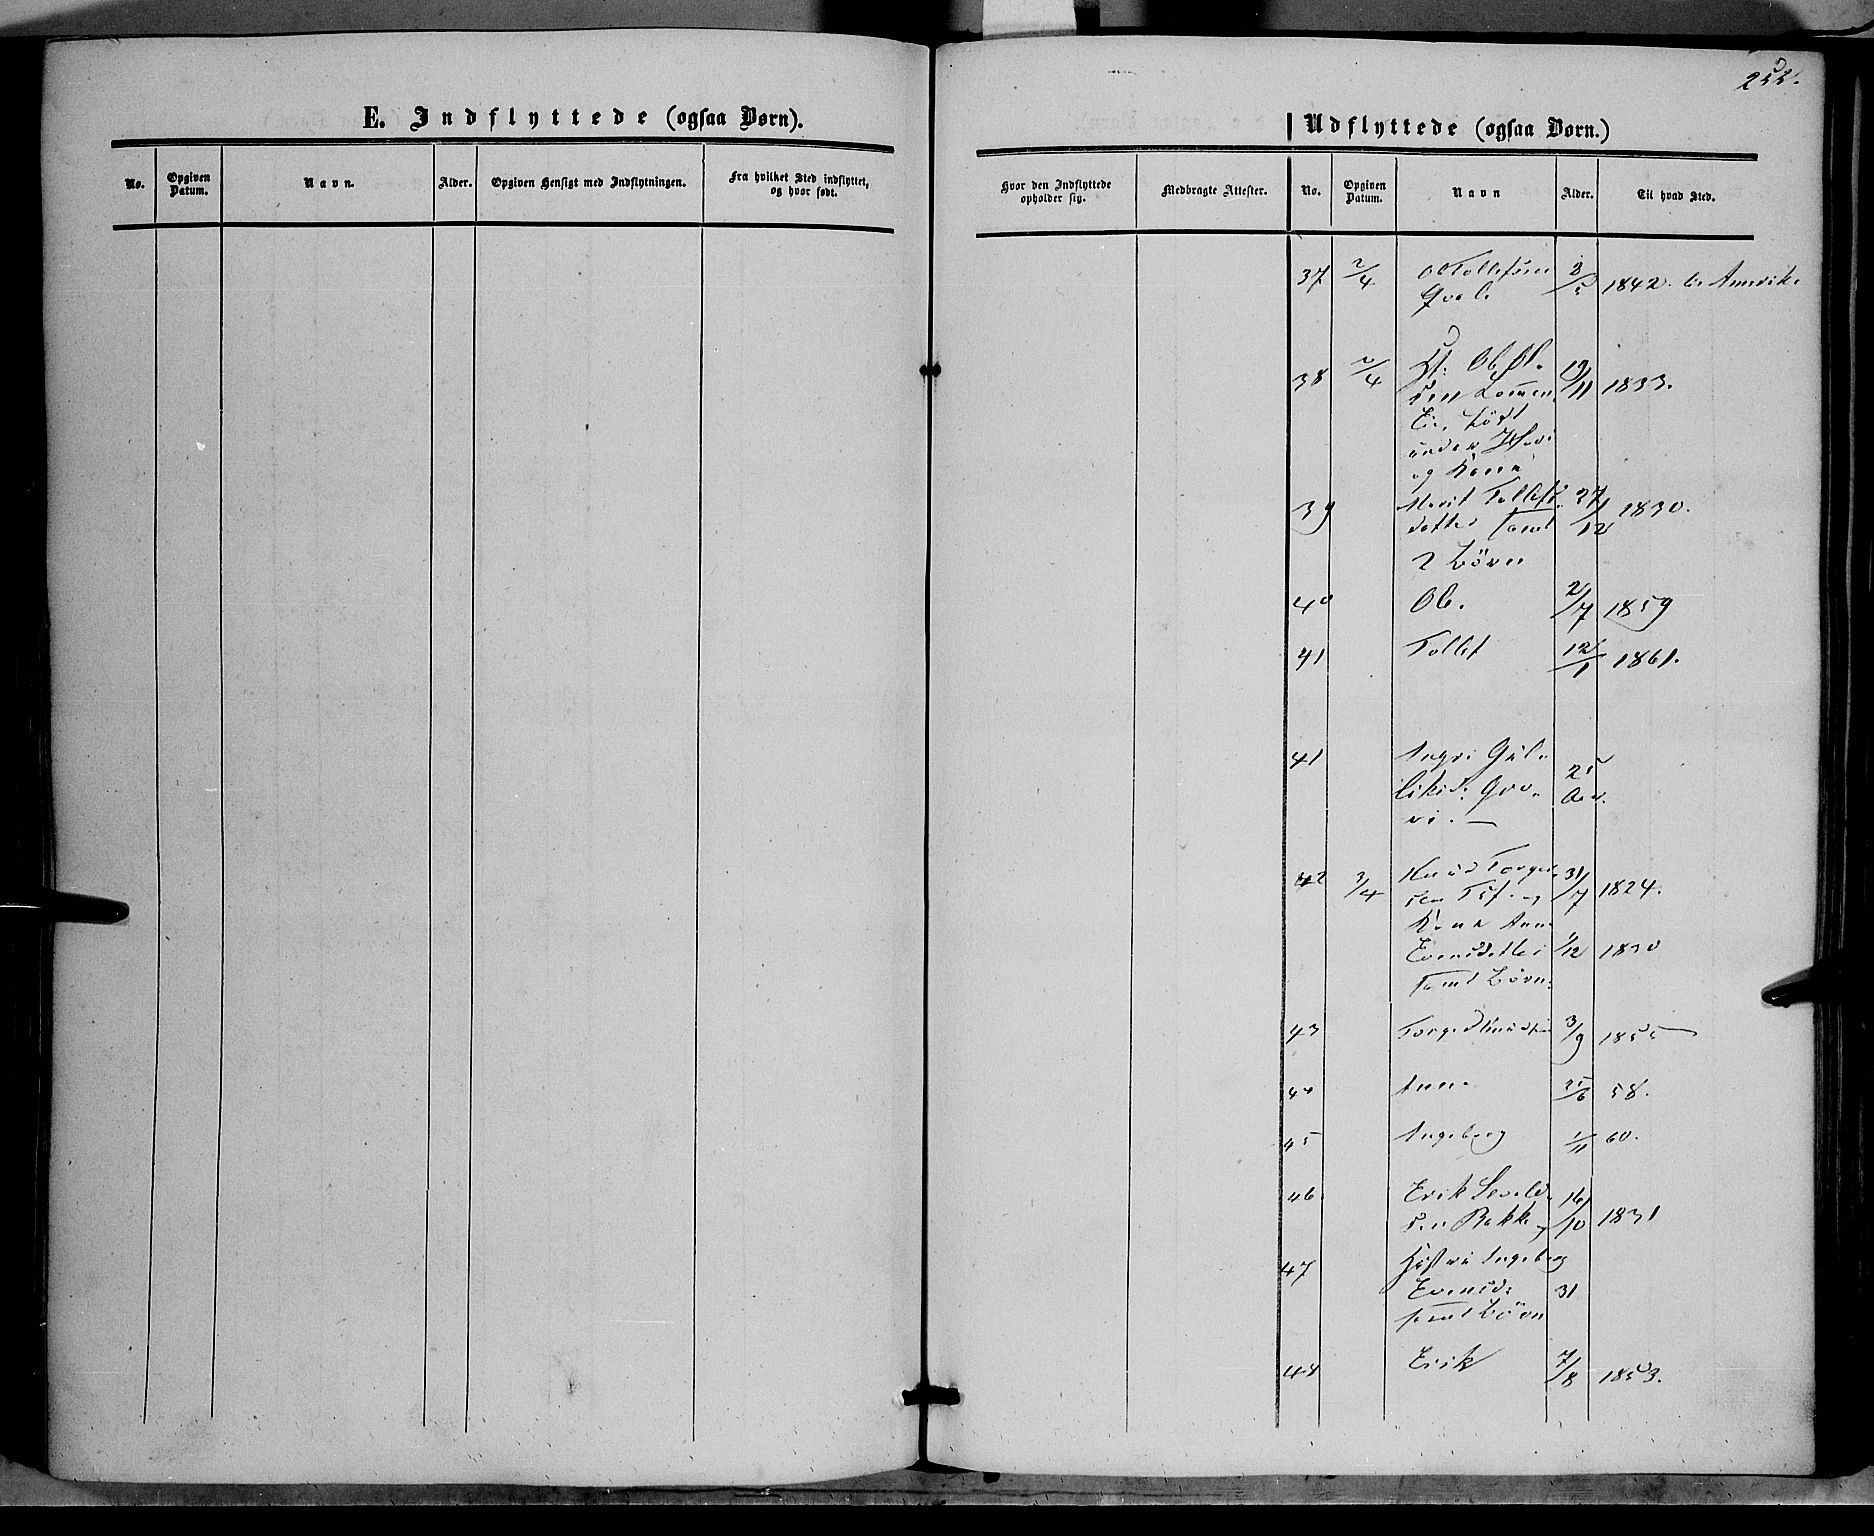 E. Indflyttede (ogsaa Børn).
No.
Opgiven Datum.
Navn.
Alder.
Opgiven Hensigt med Indflytningen.
Fra hvilket Sted indflyttet,
og hvor født.
Udflyttede (ogsaa Børn.)
Hvor den Indflyttede
opholder sig.
Medbragte Attester.
No.
Opgiven
Datum.
Navn
Alder.
Til hvad Sted.
37 2/4 Ol Tollefsen 3/5 1842. Amerika
38 2/4 Ol. 19/11 1833.
sen Lomen
under
og Kone
39 Marit Tollefs 27/12 1830.
datter samt
2 Börn
40 Ole. 2/7 1859
41 Tollef 12/1 1861.
41 Gul- 25
42 3/4 Knud Torger 31/7 1824.
sen og
Kone Anne
1/12 1830
samt Börn.
43 Torger Knudsen 3/9 1855
44 Anne 25/6 58.
45 Ingeborg 1/11 60.
46 Erik 16/10 1831
sen Bakke
47 Hustru Ingeborg
31
samt Börn
48 Erik 7/8 1853.